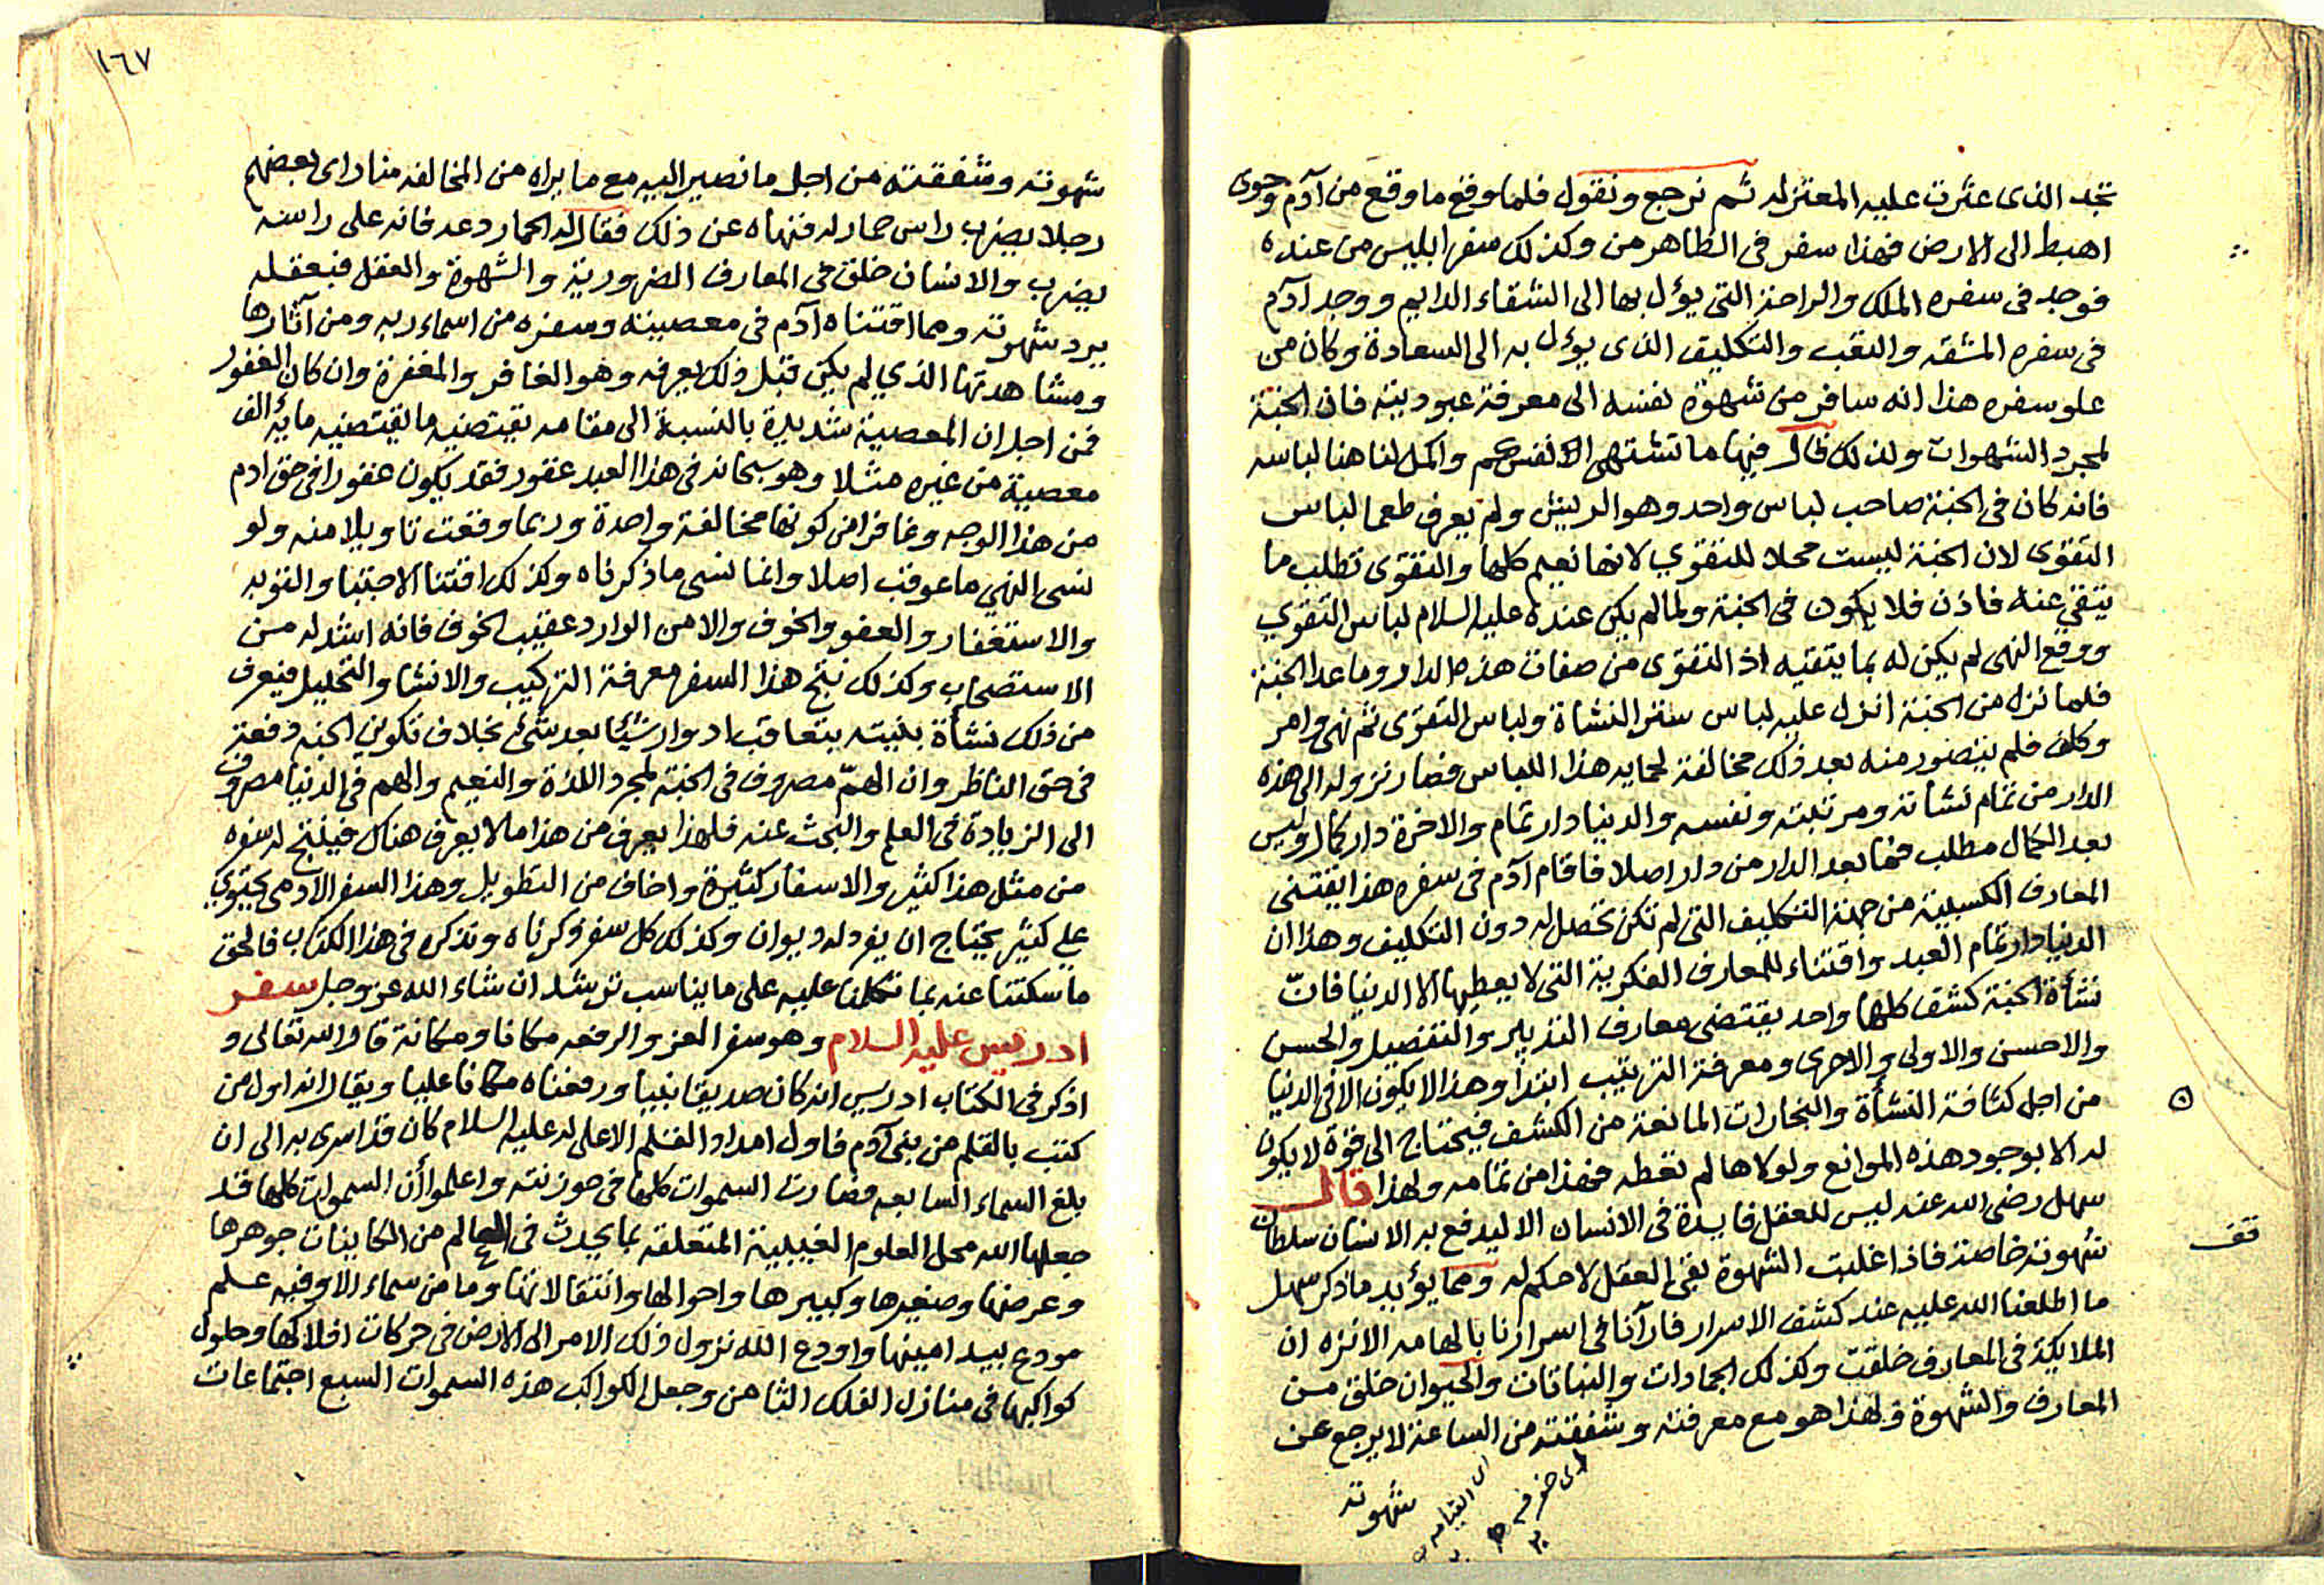 تجد الذى عثرت عليه المعتزله ثم نرجع ونقول فلما وقع ما وقع من آدم وحوى
اهبط الى الارض فهذا سفر فى الظاهر من وكذلك سفر ابليس من عنده
فوجد فى سفره الملك والراحة التى يؤل بها الى الشقاء الدايم ووجد آدم
فى سفره المشقه والتعب والتكليف الذى يؤل به الى السعادة وكان من
علو سفره هذا انه سافر من شهوة نفسه الى معرفة عبوديته فان الجنة
لمجرد الشهوات ولذلك قال فيها ما تشتهى الانفس واكمل لنا هنا لباسه
فانه كان فى الجنة صاحب لباس واحد وهو الريش ولم يعرف طعما لباس
التقوى لان الجنة ليست محلا للتقوي لانها نعيم كلها والتقوى تطلب ما
يتقي عنه فاذن فلا يكون فى الجنة ولما لم يكن عنده عليه السلام لباس التقوي
ووقع النهى لم يكن له بما يتقيه اذ التقوى من صفات هذه الدار وما عدا الجنة
فلما نزل من الجنة انزل عليه لباس ستر النشاة ولباس التقوى ثم نهى وامر
وكلف فلم يتصور منه بعد ذلك مخالفة لحمايه هذا اللباس فصار نزوله الى هذه
الدار من تمام نشأته ومرتبته ونفسه والدنيا دار تمام والاخرة دار كمال وليس
بعد الكمال مطلب فما بعد الدار من دار اصلا فاقام آدم فى سفره هذا يقتنى
المعارف الكسبية من جهة التكليف التى لم تكن تحصل له دون التكليف وهذا ان
الدنيا دار تمام العبد واقتناء للمعارف الفكرية التى لا يعطيها الا الدنيا فانّ
نشأة الجنة كشف كلها واحد يقتضى معارف التدبير والتفصيل والحسن
والاحسن والاولى والاحرى ومعرفة الترتيب ابتدأ وهذا لا يكون الا فى الدنيا
من اجل كثافة النشأة والبخارات المانعة من الكشف فيحتاج الى قوة لا يكون
له الا بوجود هذه الموانع ولولاها لم تعطه فهذا من تمامه ولهذا قال
سهل رضى الله عنه ليس للعقل فايدة فى الانسان الا ليدفع به الانسان سلطان
شهوته خاصة فاذا غلبت الشهوة بقى العقل لا حكم له ومما يؤيد ما ذكر سهل
ما اطلعنا الله عليه عند كشف الاسرار فارآنا فى اسرارنا بالهامه الانزه ان
الملايكة فى المعارف خلقت وكذلك الجمادات والنباتات والحيوان خلق من
المعارف والشهوة ولهذا هو مع معرفته وشفقته من الساعة لا يرجع عن
شهوته
قف
١٦٧
شهوته وشفقته من اجل ما نصير اليه مع ما يراه من المخالفه منا راى بعضهم
رجلا يضرب راس حمار له فنهاه عن ذلك فقال له الحمار دعه فانه على راسه
يضرب والانسان خلق فى المعارف الضرورية والشهوة والعقل فبعقله
يرد شهوته ومما اقتناه آدم فى معصيته وسفره من اسماء ربه ومن آثارها
ومشاهدتها الذي لم يكن قبل ذلك يعرفه وهو الغافر والمغفرة وان كان الغفور
فمن اجل ان المعصية شديدة بالنسبة الى مقامه يقتضيه ما يقتضيه ماية الف
معصية من غيره مثلا وهو سبحانه فى هذا العبد غفور فقد يكون غفورا فى حق ادم
من هذا الوجه وغافرا من كونها مخالفة واحدة وربما وقعت تاويلا منه ولو
نسى النهي ما عوقب اصلا وانما نسى ما ذكرناه وكذلك اقتنا الاجتبا والتوبه
والاستغفار والعفو والخوف والامن الوارد عقيب الخوف فانه اشد له من
الاستصحاب وكذلك نتج هذا السفر معرفة التركيب والانشا والتحليل فيعرف
من ذلك نشأة بنيته بتعاقب ادوار شيئا بعد شئ بخلاف تكوين الجنه دفعة
فى حق الناظر وان الهمّ مصروف فى الجنة لمجرد اللذة والنعيم والهم فى الدنيا مصروف
الى الزيادة فى العلم والبحث عنه فلهذا يعرف من هذا ما لا يعرف هناك فينتج له سفره
من مثل هذا كثير والاسفار كثيرة واخاف من التطويل وهذا السفر الادمى يحتوي
على كثير يحتاج ان يفرد له ديوان وكذلك كل سفر ذكرناه ونذكره فى هذا الكتاب فالحق
ما سكتنا عنه بما تكلمنا عليه على ما يناسب ترشد ان شاء الله عز وجل سفر
ادريس عليه السلام وهو سفر العز والرفعه مكانا ومكانة قال الله تعالى و
اذكر فى الكتاب ادريس انه كان صديقا نبيا ورفعناه مكانا عليا ويقال انه اول من
كتب بالقلم من بنى آدم فاول امداد القلم الاعلى له عليه السلام كان قد اسرى به الى ان
بلغ السماء السابعه فصارت السموات كلها فى حوزته واعلموا أن السموات كلها قد
جعلها الله محل العلوم الغيبية المتعلقه بما يحدث فى العالم من الكاينات جوهرها
وعرضها وصغيرها وكبيرها واحوالها وانتقالاتها وما من سماء الا وفيه علم
مودع بيد امينها واودع الله نزول ذلك الامر الى الارض فى حركات افلاكها وحلول
كواكبها فى منازل الفلك الثامن وجعل لكواكب هذه السموات السبع اجتماعات